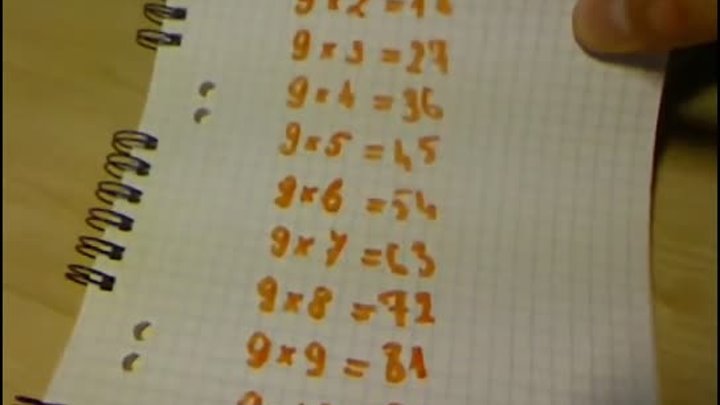 9×2=18
9×3=27
9×4=36
9×5=45
9×6=54
9×7=63
9×8=72
9×9=81